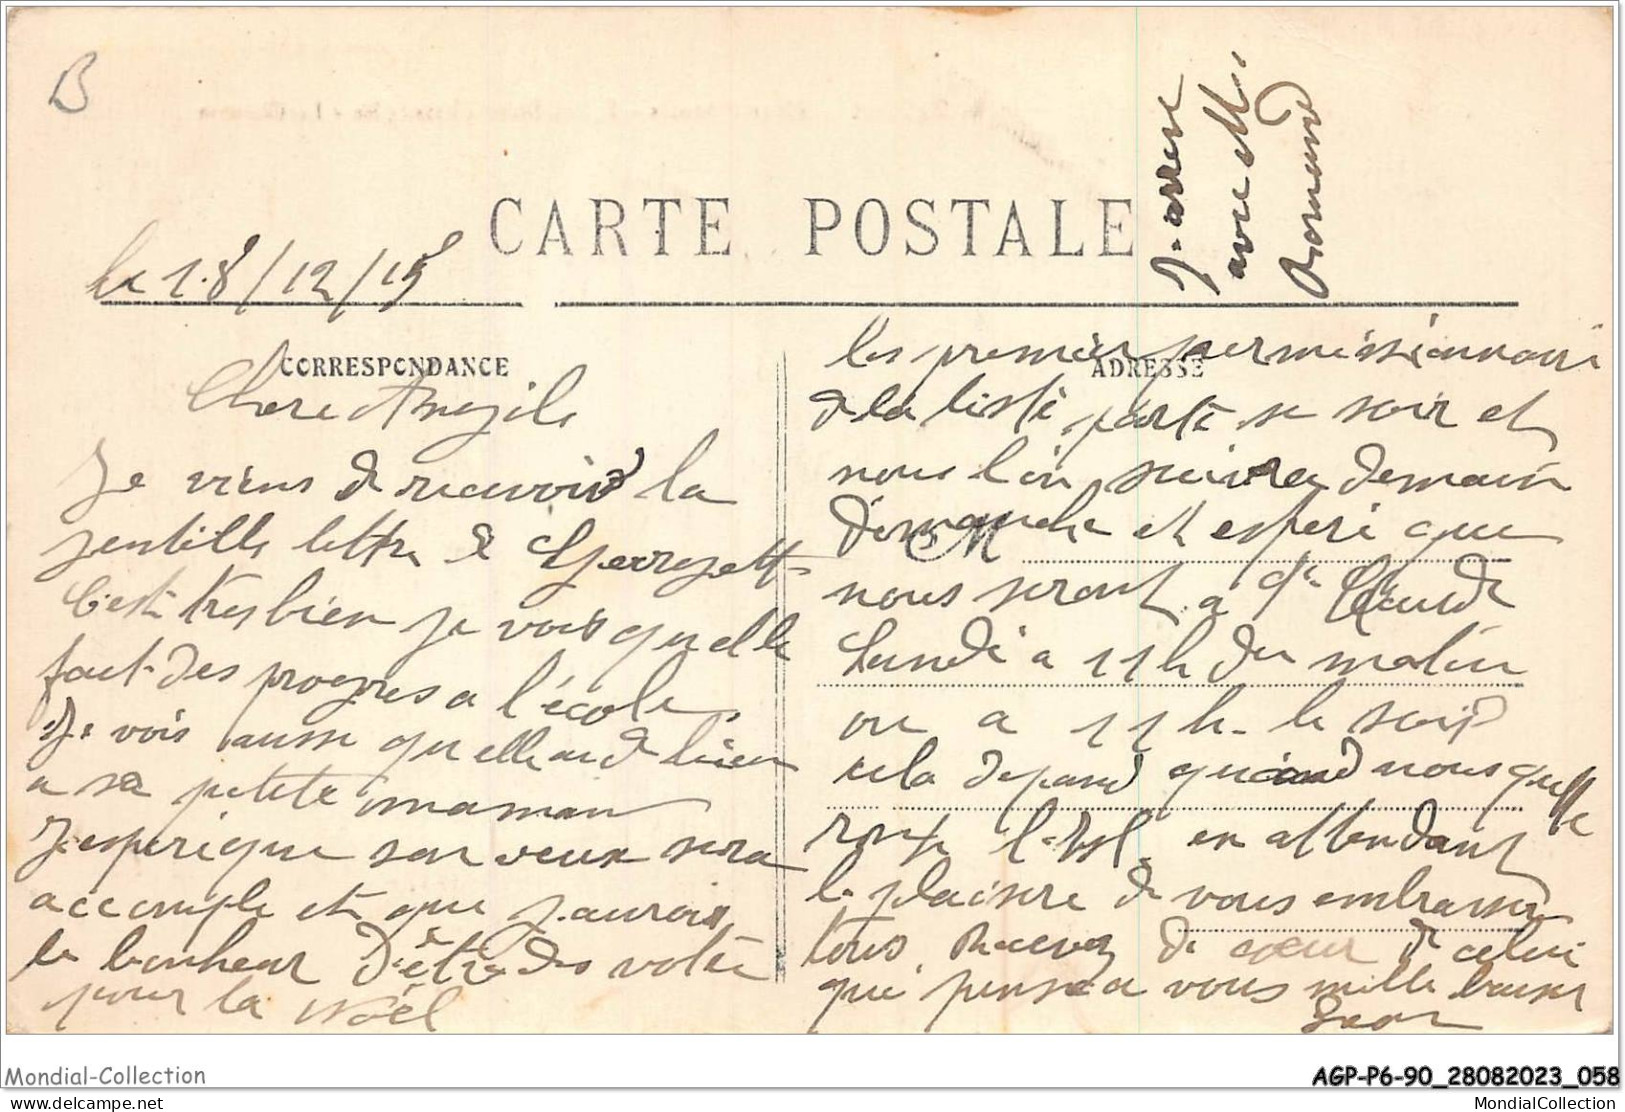 B
CARTE POSTALE
le 18/12/15
CORRESPONDANCE
ADRESSE
Chere Angele
Je viens de recevoir la
jentille lettre de Georgett
C'est tres bien je vois qu elle
fait des progres a l'école,
Je vois aussi qu elle aide bien
a sa petite maman
J'esperi que son veux sera
accomple et que j'aurois
le bonheur d'être des votre
pour la Noël
les premier permissionnair
de la liste parte se soir et
nous l'on suivra demain
dimanche et esperi que
M
nous seront a St Claude
Lundi a 11h du matin
ou a 11h. le soir
cela depand quand nous quitte
ront en attendant
le plaisire de vous embrasser
tous. Recevez de cœur de celui
qui pense a vous mille baiser
J'arrive
avec Mr
Romand
Mondial-Collection
AGP-P6-90_28082023_058
delcampe.net
MondialCollection